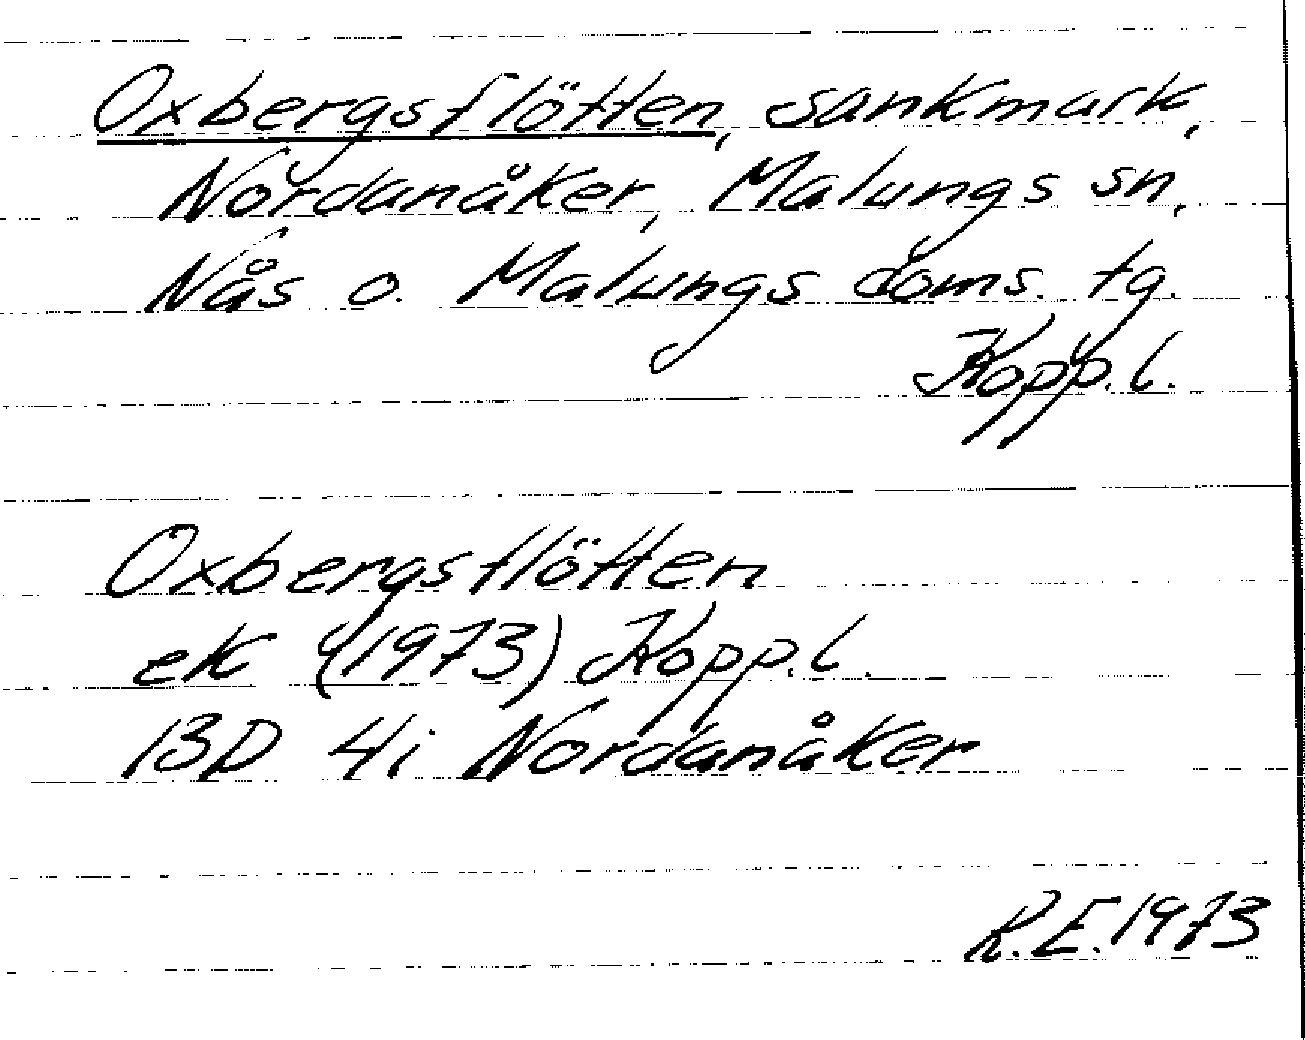 Oxbergsflötten, sankmark,
Nordanåker, Malungs sn,
Nås o. Malungs doms. tg.
Kopp. l.
Oxbergsflötten
ek (1973) Kopp. l.
13D 4i Nordanåker
R.E. 1973